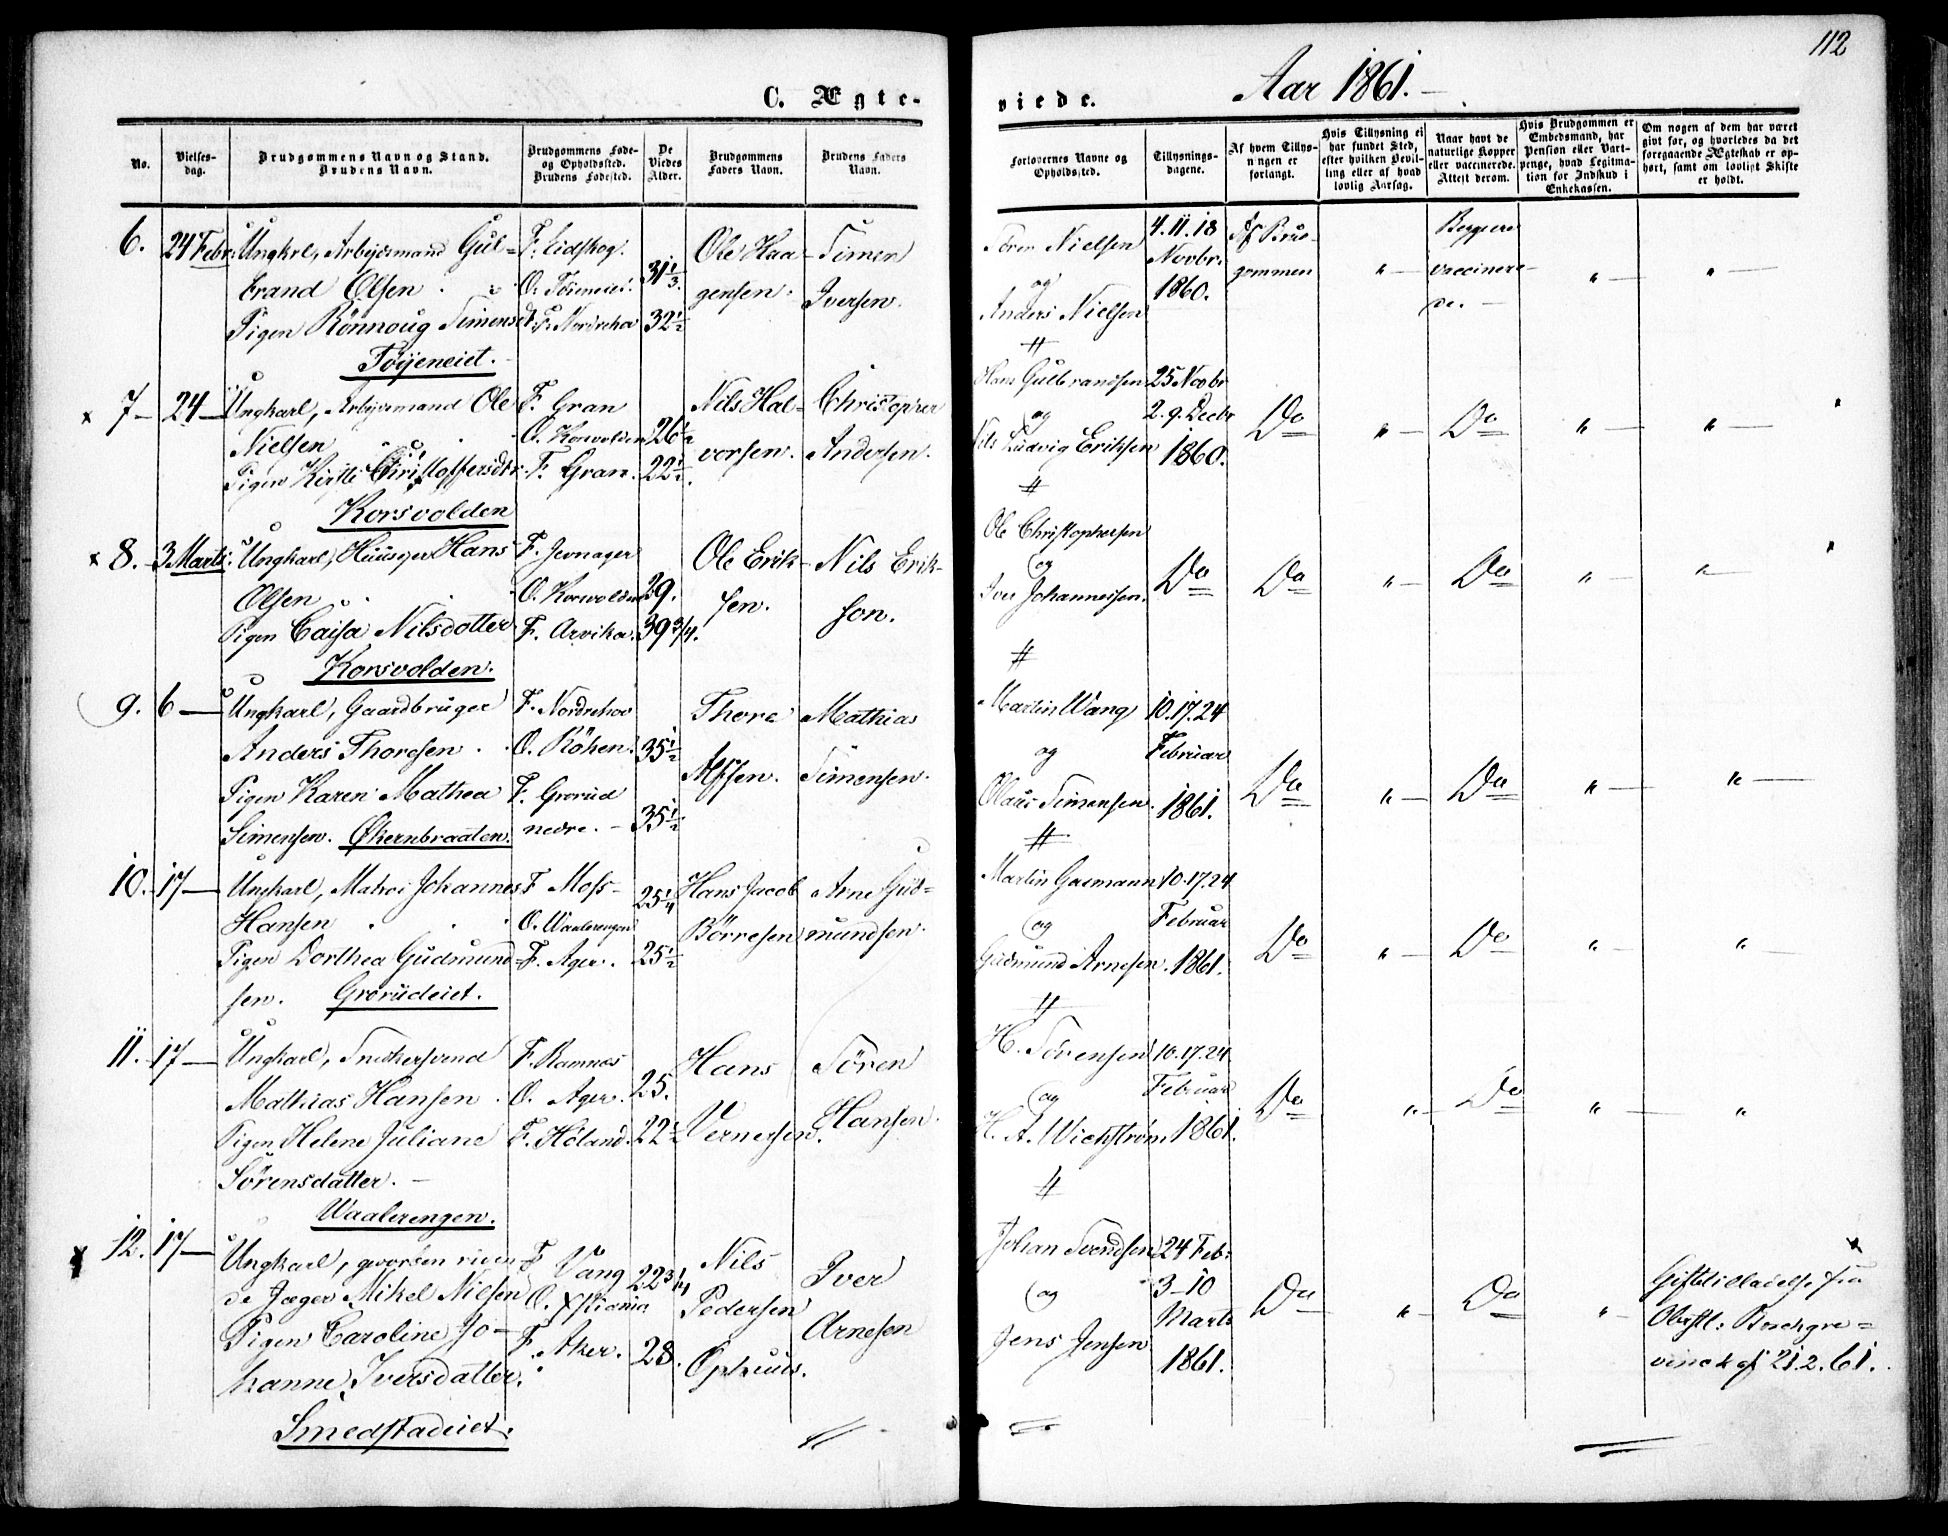 112
C. Ægte-
viede.
Aar 1861.
No.
Vielses-
dag.
Brudgommens Navn og Stand.
Brudens Navn.
Brudgommens Føde-
og Opholdssted.
Brudens Fødested.
De
Viedes
Alder.
Brudgommens
Faders Navn.
Brudens Faders
Navn.
Forlovernes Navne og
Opholdssted.
Tillysnings-
dagene.
Af hvem Tillys-
ningen er
forlangt.
Hvis Tillysning ei
har fundet Sted,
efter hvilken Bevil-
ling eller af hvad
lovlig Aarsag.
Naar havt de
naturlige Kopper
eller vaccinerede.
Attest derom.
Hvis Brudgommen er
Embedsmand, har
Pension eller Vart-
penge, hvad Legitima-
tion for Indskud i
Enkekassen.
Om nogen af dem har været
givt før, og hvorledes da det
foregaaende Ægteskab er op-
hørt, samt om lovligt Skifte
er holdt.
6. 24 Febr: Ungkrl, Arbejdsmand Gul=
brand Olsen
Pigen Rönnoug Simensd
Töijeneiet.
F. Eidskog.
O. Töieneiet.
F. Nordrehov
31 1/3.
32 1/2
Ole Haa-
gensen.
Simen
Iversen.
Sören Nielsen
og
Anders Nielsen
4. 11. 18
Novbr.
1860.
Af Brud-
gommen
" —
Begge
vaccinere-
de. —
" —
" —
7 — 24 — Ungkarl, Arbejdsmand Ole
Nielsen
Pigen Kirsti Christoffersdtr.
Korsvolden
F. Gran
O. Korsvolden
F. Gran.
26 1/2
22 1/2.
Nils Hal-
vorsen.
Christopher
Andersen.
Hans Gulbrandsen
og
Nils Ludvig Eriksen
25 Novbr
2. 9. Decbr
1860.
Do
" —
Do
" —
" —
8. 3 Marts: Ungkarl, Huusejer Hans
Olsen
Pigen Caisa Nilsdotter
Korsvolden.
F. Jevnager
O. Korsvolden
F. Arvika.
29.
39 3/4.
Ole Erik-
sen.
Nils Erik-
son.
Ole Christophersen
og
Iver Johannessen.
Do
Do
" —
Do
" —
" —
9. 6 — Ungkarl, Gaardbruger
Anders Thoresen
Pigen Karen Mathea
Simensen. Økernbraaten.
F. Nordrehov
O. Röhen.
F. Grorud
nedre. —
35 1/2
35 1/2
Thore
Alfsen.
Mathias
Simensen.
Martin Wang
og
Olaus Simensen.
10. 17. 24
Februar
1861.
Do
" —
Do
" —
" —
10. 17 — Ungkarl, Matros Johannes
Hansen
Pigen Dorthea Gudmund=
sen. Grorudeiet.
F. Moss
O. Waalerengen
F. Ager.
25 1/4
25 1/2
Hans Jacob
Börresen
Arne Gud=
mundsen.
Martin Gasmann
og
Gudmund Arnesen.
10. 17. 24
Februar
1861.
Do
" —
Do
" —
" —
11. 17 — Ungkarl, Snedkersvend
Mathias Hansen
Pigen Helene Juliane
Sörensdatter. —
Waalerengen.
F. Ramnes
O. Ager.
F. Höland.
25.
22 1/2
Hans
Vernersen.
Sören
Hansen.
H. Sörensen
og
H. A. Wickström
10. 17. 24
Februar
1861.
Do
" —
Do
" —
"
12. 17 — Ungkarl, gevorben riden
de Jæger Mikel Nielsen
Pigen Caroline Jo-
hanne Iversdatter.
Smedstadeiet.
F. Vang
O. Xstiania
F. Aker.
22 3/4
28.
Nils
Pedersen
Ophuus.
Iver
Arnesen
Johan Svendsen
og
Jens Jensen
24 Feb:
3 — 10
Marts
1861.
Do
" —
Do
" —
Giftetilladelse fra
Oberstl:
af 21. 2. 61.